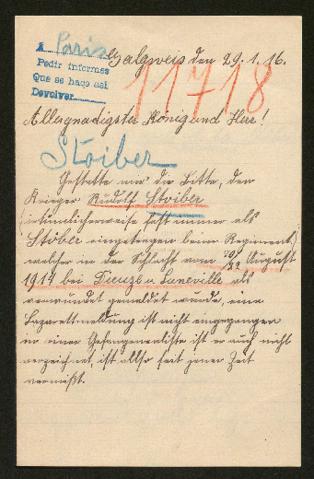 A Paris
Pedir informes
Que se haga así
Devolver
Galgweis den 29.1.16.
11718
Allergnädigster König und Herr!
Stoiber
Gestatte mir die Bitte, den
Krieger Rudolf Stoiber
(irrtümlicherweise fast immer als
Stöber eingetragen beim Regiment)
welcher in der Schlacht vom 20/22 August
1914 bei Dieuze u. Luneville als
verwundet gemeldet wurde, eine
Lazarettmeldung ist nicht eingegangen
in einer Gefangenenliste ist er auch nicht
verzeichnet, ist also seit jener Zeit
vermißt.